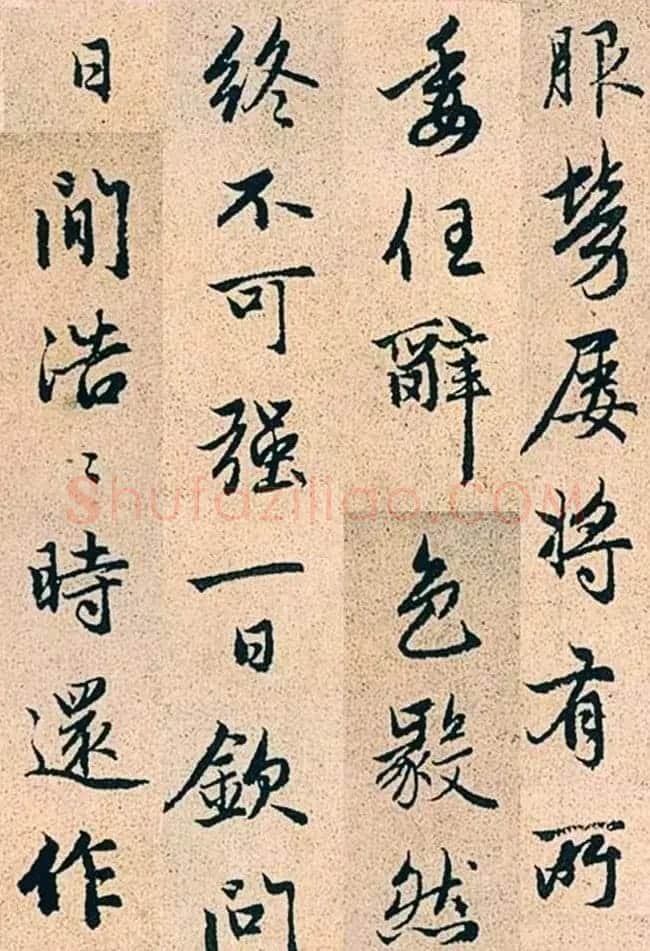 服勞屡将有所
委任辭色毅然
終不可强一日欽問
日間浩〻時還作
Shufaziliao.COM